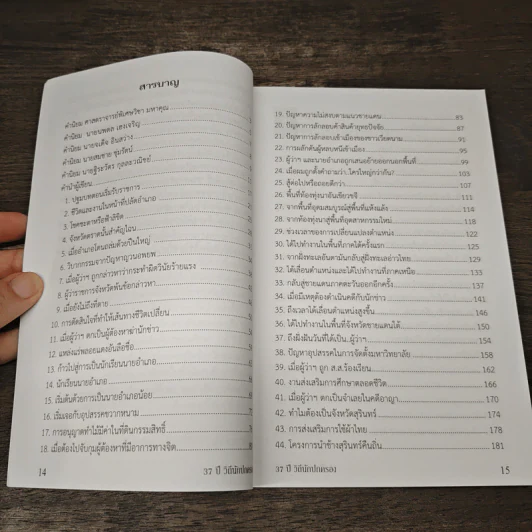 สารบาญ
คำนิยม ศาสตราจารย์พิเศษวิชา มหาคุณ
คำนิยม นายนพดล เฮงเจริญ
คำนิยม นายจเด็จ อินสว่าง
คำนิยม นายสมชาย ชุ่มรัตน์
คำนิยม นายฐิระวัตร กุลละวณิชย์
คำนำผู้เขียน
1. ปฐมบทตอนเริ่มรับราชการ
2. ชีวิตและงานในหน้าที่ปลัดอำเภอ
3. โชคชะตาหรือฟ้าลิขิต
4. จังหวัดตราดนั้นสำคัญไฉน
5. เมื่ออำเภอโดนถล่มด้วยปืนใหญ่
6. วิบากกรรมจากปัญหาญวนอพยพ
7. เมื่อผู้ว่าฯ ถูกกล่าวหาว่ากระทำผิดวินัยร้ายแรง
8. ผู้ว่าราชการจังหวัดพ้นข้อกล่าวหา
9. เมื่อยังไม่ถึงที่ตาย
10. การตัดสินใจที่ทำให้เส้นทางชีวิตเปลี่ยน
11. เมื่อผู้ว่าฯ ตกเป็นผู้ต้องหาฆ่านักข่าว
12. แหล่งแร่พลอยแดงอันลือชื่อ
13. ก้าวไปสู่การเป็นนักเรียนนายอำเภอ
14. นักเรียนนายอำเภอ
15. เริ่มต้นด้วยการเป็นนายอำเภอน้อย
16. เริ่มเจอกับอุปสรรคขวากหนาม
17. การอนุญาตทำไม้มีค่าในที่ดินกรรมสิทธิ์
18. เมื่อต้องไปจับกุมผู้ต้องหาที่มีอาการทางจิต
14 37 ปี วิถีนักปกครอง
19. ปัญหาความไม่สงบตามแนวชายแดน 85
20. ปัญหาการลักลอบค้าสินค้ายุทธปัจจัย 87
21. ปัญหาการลักลอบเข้าเมืองของชาวเวียดนาม 91
22. การผลักดันผู้หลบหนีเข้าเมือง 95
23. ผู้ว่าฯ และนายอำเภอถูกเสนอย้ายออกนอกพื้นที่ 99
24. เมื่อผมถูกตั้งคำถามว่า..ใครใหญ่กว่ากัน? 103
25. สู้ต่อไปหรือถอยดีกว่า 107
26. พื้นที่ท้องทุ่งนาอันเขียวขจี 111
27. จากพื้นที่อุดมสมบูรณ์สู่พื้นที่แห้งแล้ง 114
28. จากท้องทุ่งนาสู่พื้นที่อุตสาหกรรมใหม่ 118
29. ช่วงเวลาของการเปลี่ยนแปลงตำแหน่ง 122
30. ได้ไปทำงานในพื้นที่ภาคใต้ครั้งแรก 125
31. จากฝั่งทะเลอันดามันกลับสู่ฝั่งทะเลอ่าวไทย 129
32. ได้เลื่อนตำแหน่งและได้ไปทำงานที่ภาคเหนือ 133
33. กลับสู่ชายแดนภาคตะวันออกอีกครั้ง 137
34. เมื่อมีเหตุต้องดำเนินคดีกับนักข่าว 141
35. ถึงเวลาได้เลื่อนตำแหน่งสูงขึ้น 146
36. ได้ไปทำงานในพื้นที่จังหวัดชายแดนใต้ 150
37. ถึงฝั่งฝันวันที่ได้เป็น..ผู้ว่าฯ 154
38. ปัญหาอุปสรรคในการจัดตั้งมหาวิทยาลัย 158
39. เมื่อผู้ว่าฯ ถูก ส.ส.ร้องเรียน 162
40. งานส่งเสริมการศึกษาตลอดชีวิต 166
41. เมื่อผู้ว่าฯ ตกเป็นจำเลยในคดีอาญา 170
42. ทำไมต้องเป็นจังหวัดสุรินทร์ 174
43. การส่งเสริมการใช้ผ้าไทย 178
44. โครงการนำช้างสุรินทร์คืนถิ่น 181
37 ปี วิถีนักปกครอง 15